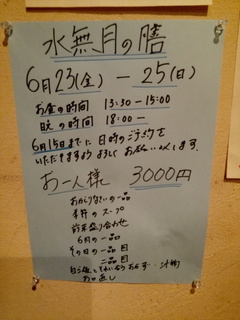 水無月の膳
6月23(金) ― 25(日)
お昼の時間 13:30 - 15:00
晩の時間 18:00 -
6月15日までに日時のご予約を
いただきますようよろしくお願いします.
お一人様 3000円
おかわりないの一品
季節のスープ
前菜盛り合わせ
6月の一品
その日の一品目
二品目
白ご飯と
お口直し